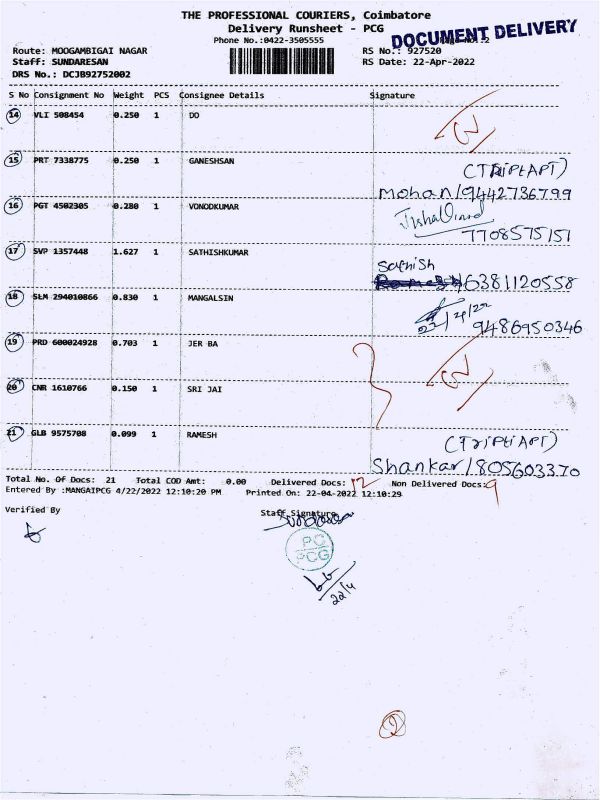 THE PROFESSIONAL COURIERS, Coimbatore
Delivery Runsheet - PCG
DOCUMENT DELIVERY
Phone No.:0422-3505555
Route: MOOGAMBIGAI NAGAR
RS No.: 927520
Staff: SUNDARESAN
RS Date: 22-Apr-2022
DRS No.: DCJB92752002
S No Consignment No Weight PCS Consignee Details Signature
14 VLI 508454 0.250 1 DO
15 PRT 7338775 0.250 1 GANESHSAN
(Tript APT)
Mohan/9442736799
16 PGT 4502305 0.280 1 VONODKUMAR
7708575151
17 SVP 1357448 1.627 1 SATHISHKUMAR
Sathish
6381120558
18 SLM 294010866 0.830 1 MANGALSIN
22/4/22
9486950346
19 PRD 600024928 0.703 1 JER BA
20 CNR 1610766 0.150 1 SRI JAI
21 GLB 9575708 0.099 1 RAMESH
(Tripti APT)
Shankar/805603370
Total No. Of Docs: 21 Total COD Amt: 0.00 Delivered Docs: 12 Non Delivered Docs: 9
Entered By :MANGAIPCG 4/22/2022 12:10:20 PM Printed On: 22-04-2022 12:10:29
Verified By
Staff Signature
PC
PCG
22/4
2